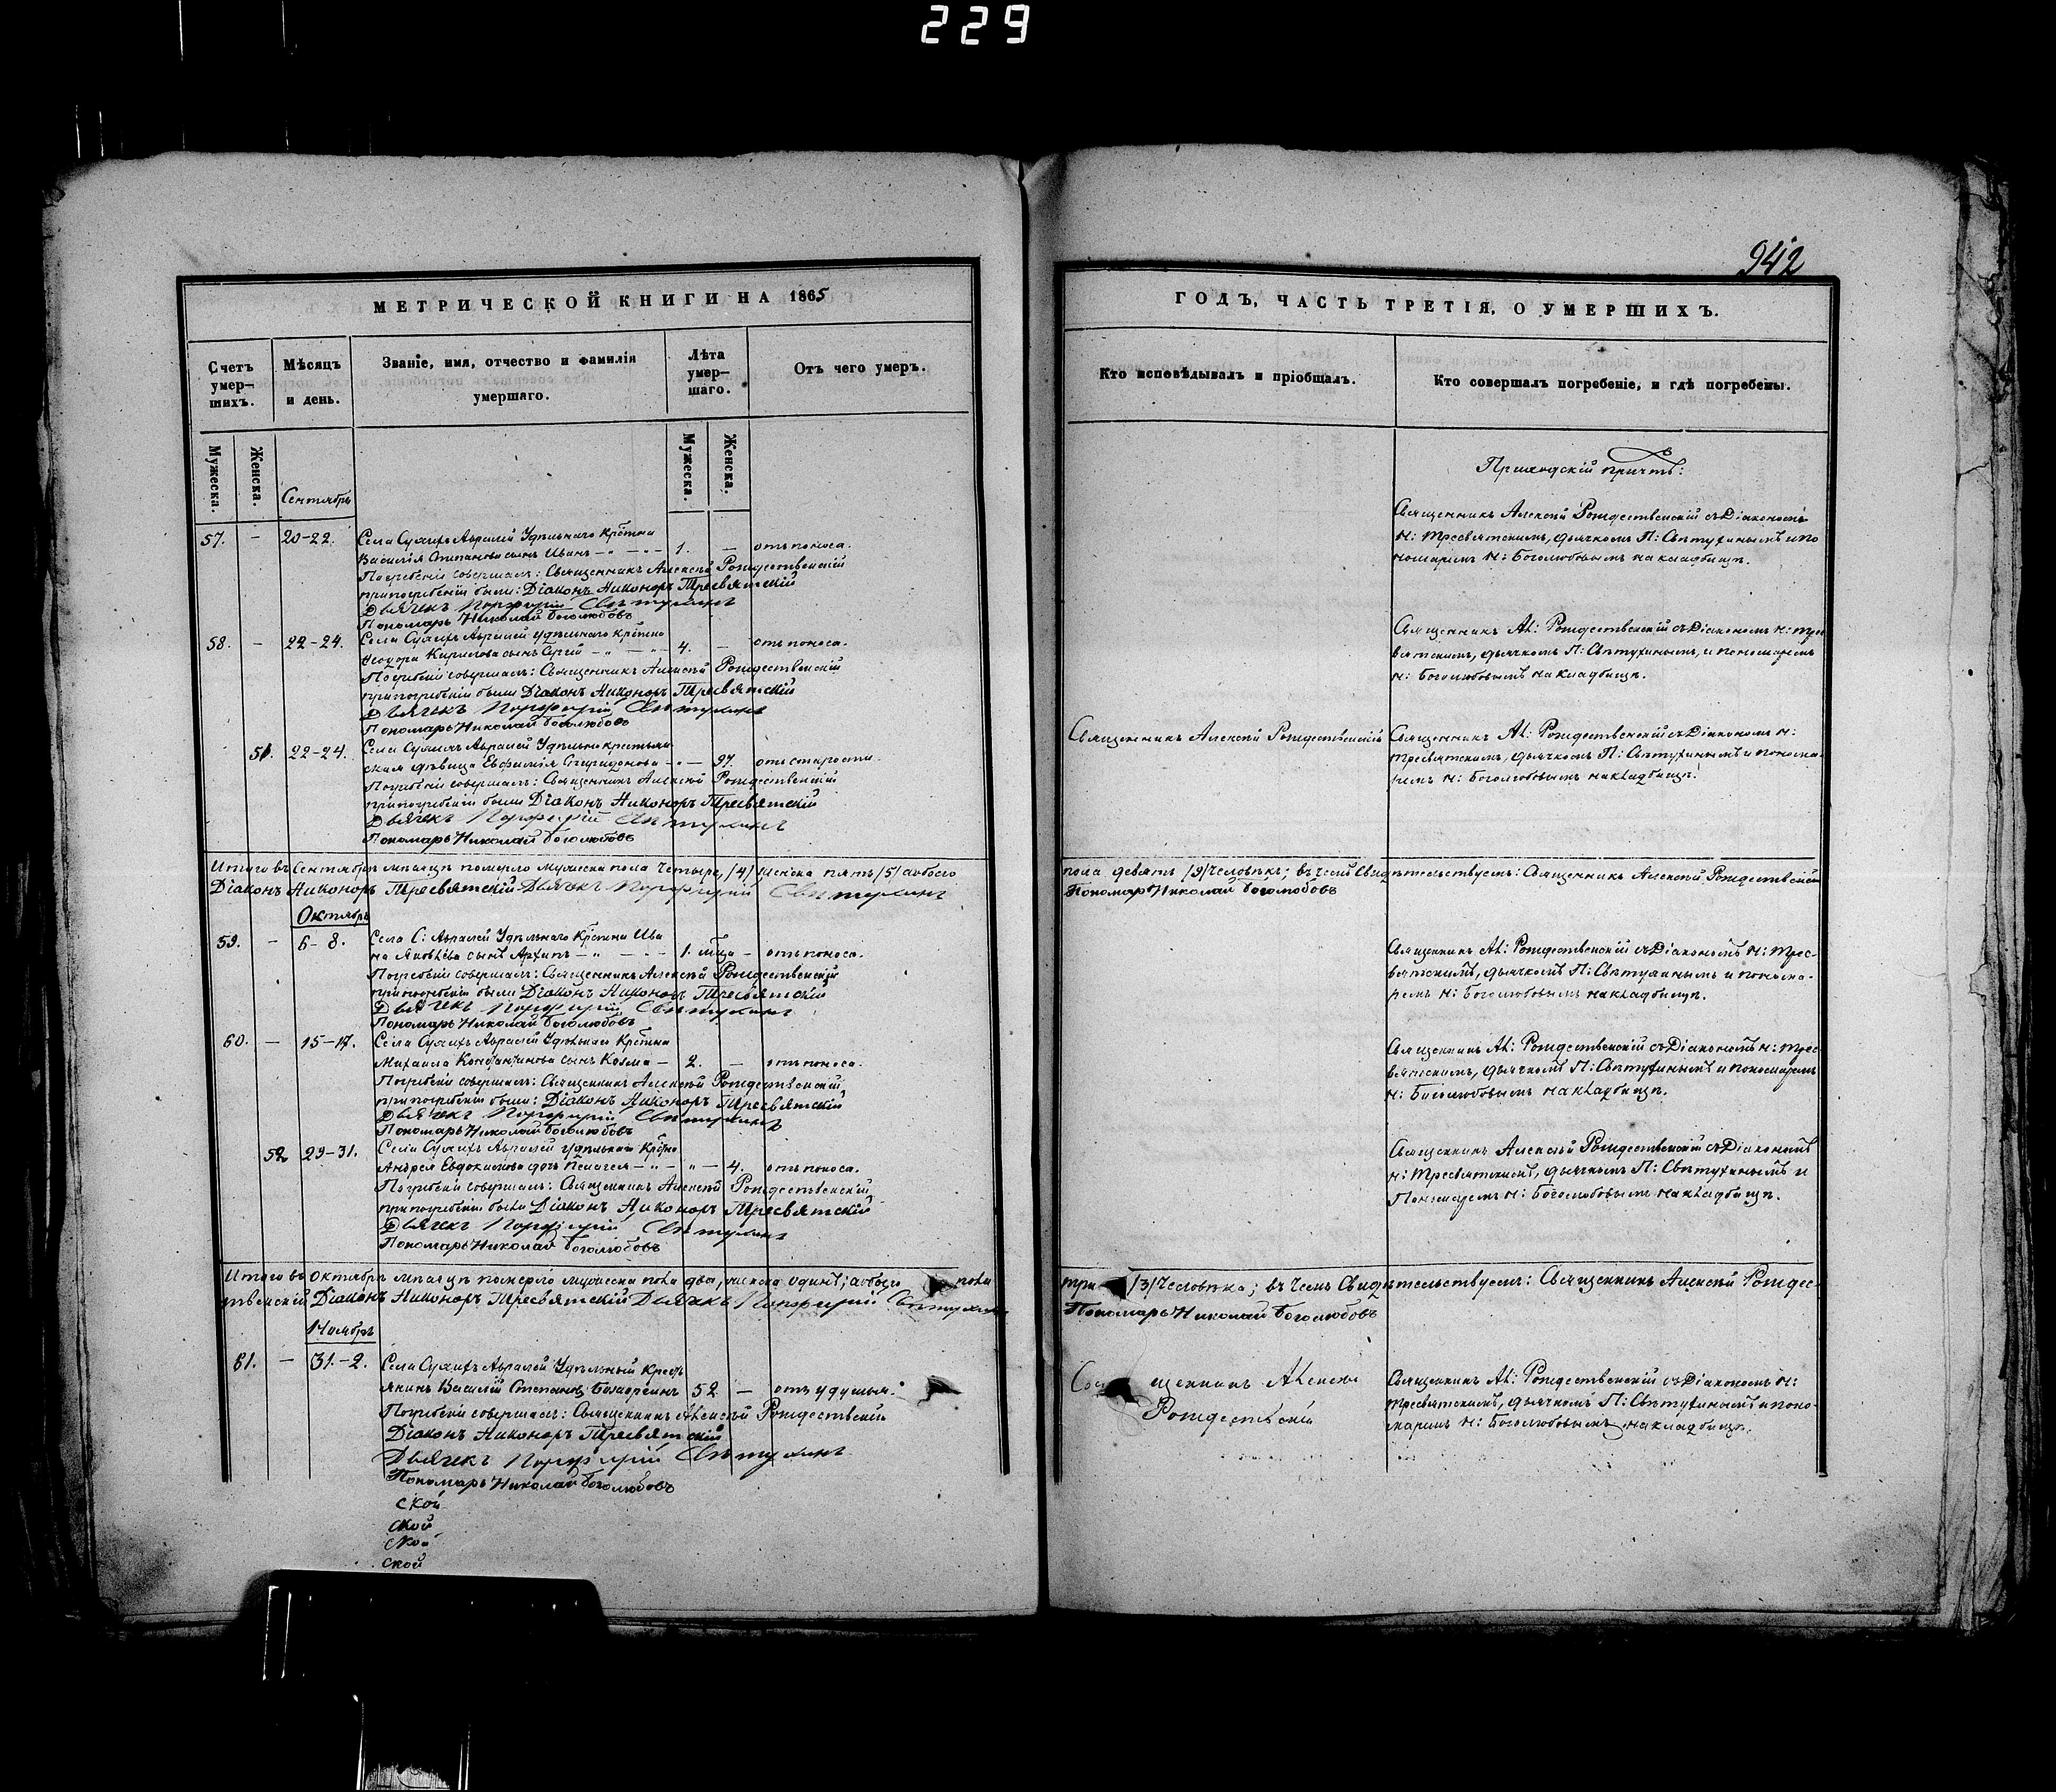 229
942
МЕТРИЧЕСКОЙ КНИГИ НА 1865
Счетъ умер-
шихъ.
Мѣсяцъ
и день.
Званіе, имя, отчество и фамилія
умершаго.
Лѣта
умер-
шаго.
Отъ чего умеръ.
Мужеска.
Женска.
Мужеска.
Женска.
Сентябрь
57. – 20-22. Села Сухихъ Авралей Удѣльнаго Кр̃тнина
Василія Степанова сынъ Иванъ – 1. – отъ поноса.
Погребеніе совершалъ: Священникъ Алексѣй Рождественскій
при погребеніи были: Діаконъ Никоноръ Тресвятскій
Дьячекъ Порфирій Свѣтухинъ
Пономарь Николай Боголюбовъ
58. – 22-24. Села Сухихъ Авралей удѣльнаго Кр̃тнина
Ѳеодора Кирилова сынъ Сергій – 4. – отъ поноса.
Погребеніе совершалъ: Священникъ Алексѣй Рождественскій
при погребеніи были Діаконъ Никоноръ Тресвятскій
Дьячекъ Порфирій Свѣтухинъ
Пономарь Николай Боголюбовъ
51. 22-24. Села Сухихъ Авралей Удѣльная крестьян
ская дѣвица Евфимія Спиридонова – 97. отъ старости.
Погребеніе совершалъ: Священникъ Алексѣй Рождественскій
при погребеніи были Діаконъ Никоноръ Тресвятскій
Дьячекъ Порфирій Свѣтухинъ
Пономарь Николай Боголюбовъ
Итого въ Сентябрѣ мѣсяцѣ померло мужеска пола четыре /4/ женска пять /5/ а обоего
Діаконъ Никоноръ Тресвятскій Дьячекъ Порфирій Свѣтухинъ
Октябрь
59. – 6-8. Села С: Авралей Удѣльнаго Кр̃тнина Ива
на Яковлева сынъ Архипъ – 1. мц̃а – отъ поноса.
Погребеніе совершалъ: Священникъ Алексѣй Рождественскій
при погребеніи были Діаконъ Никоноръ Тресвятскій
Дьячекъ Порфирій Свѣтухинъ
Пономарь Николай Боголюбовъ
60. – 15-17. Села Сухихъ Авралей Удѣльнаго Кр̃тнина
Михаила Константинова сынъ Козма – 2. – отъ поноса.
Погребеніе совершалъ: Священникъ Алексѣй Рождественскій
при погребеніи были: Діаконъ Никоноръ Тресвятскій
Дьячекъ Порфирій Свѣтухинъ
Пономарь Николай Боголюбовъ
52 29-31. Села Сухихъ Авралей удѣльнаго Кр̃тнина
Андрея Евдокимова дочь Пелагея – 4. отъ поноса.
Погребеніе совершалъ: Священникъ Алексѣй Рождественскій
при погребеніи были Діаконъ Никоноръ Тресвятскій
Дьячекъ Порфирій Свѣтухинъ
Пономарь Николай Боголюбовъ
Итого въ Октябрѣ мѣсяцѣ померло мужеска пола два, женска одинъ; а обоего пола
ственскій Діаконъ Никоноръ Тресвятскій Дьячекъ Порфирій Свѣтухинъ
Ноябрь
61. – 31.-2. Села Сухихъ Авралей Удѣльный Кресть
янинъ Василій Степановъ 52 – отъ удушья.
Погребеніе совершалъ: Священникъ Алексѣй Рождественскій
Діаконъ Никоноръ Тресвятскій
Дьячекъ Порфирій Свѣтухинъ
Пономарь Николай Боголюбовъ
ской
ской
ской
ской
ГОДЪ, ЧАСТЬ ТРЕТІЯ, О УМЕРШИХЪ.
Кто исповѣдывалъ и пріобщалъ.
Кто совершалъ погребеніе, и гдѣ погребены.
Приходскій причтъ:
Священникъ Алексѣй Рождественскій съ Діакономъ
Н: Тресвятскимъ, дьячкомъ П: Свѣтухинымъ и по
номаремъ Н: Боголюбовымъ на кладбищѣ.
Священникъ Ал: Рождественскій съ Діакономъ Н: Трес
вятскимъ, дьячкомъ П: Свѣтухинымъ, и пономаремъ
Н: Боголюбовымъ на кладбищѣ.
Священникъ Алексѣй Рождественскій
Священникъ Ал: Рождественскій съ Діакономъ Н:
Тресвятскимъ, дьячкомъ П: Свѣтухинымъ и понома-
ремъ Н: Боголюбовымъ на кладбищѣ.
пола девять /9/ человѣкъ; въ чемъ свидѣтельствуемъ: Священникъ Алексѣй Рождественскій
Пономарь Николай Боголюбовъ
Священникъ Ал: Рождественскій съ Діакономъ Н: Трес-
вятскимъ, дьячкомъ П: Свѣтухинымъ и понома-
ремъ Н: Боголюбовымъ на кладбищѣ.
Священникъ Ал: Рождественскій съ Діакономъ Н: Трес-
вятскимъ, дьячкомъ П: Свѣтухинымъ и пономаремъ
Н: Боголюбовымъ на кладбищѣ.
Священникъ Алексѣй Рождественскій съ Діакономъ
Н: Тресвятскимъ, дьячкомъ П: Свѣтухинымъ и
Пономаремъ Н: Боголюбовымъ на кладбищѣ.
три /3/ человѣка; въ чемъ свидѣтельствуемъ: Священникъ Алексѣй Рождес-
Пономарь Николай Боголюбовъ
Священникъ Алексѣй
Рождественскій
Священникъ Ал: Рождественскій съ Діакономъ Н:
Тресвятскимъ, дьячкомъ П: Свѣтухинымъ и поно-
маремъ Н: Боголюбовымъ на кладбищѣ.